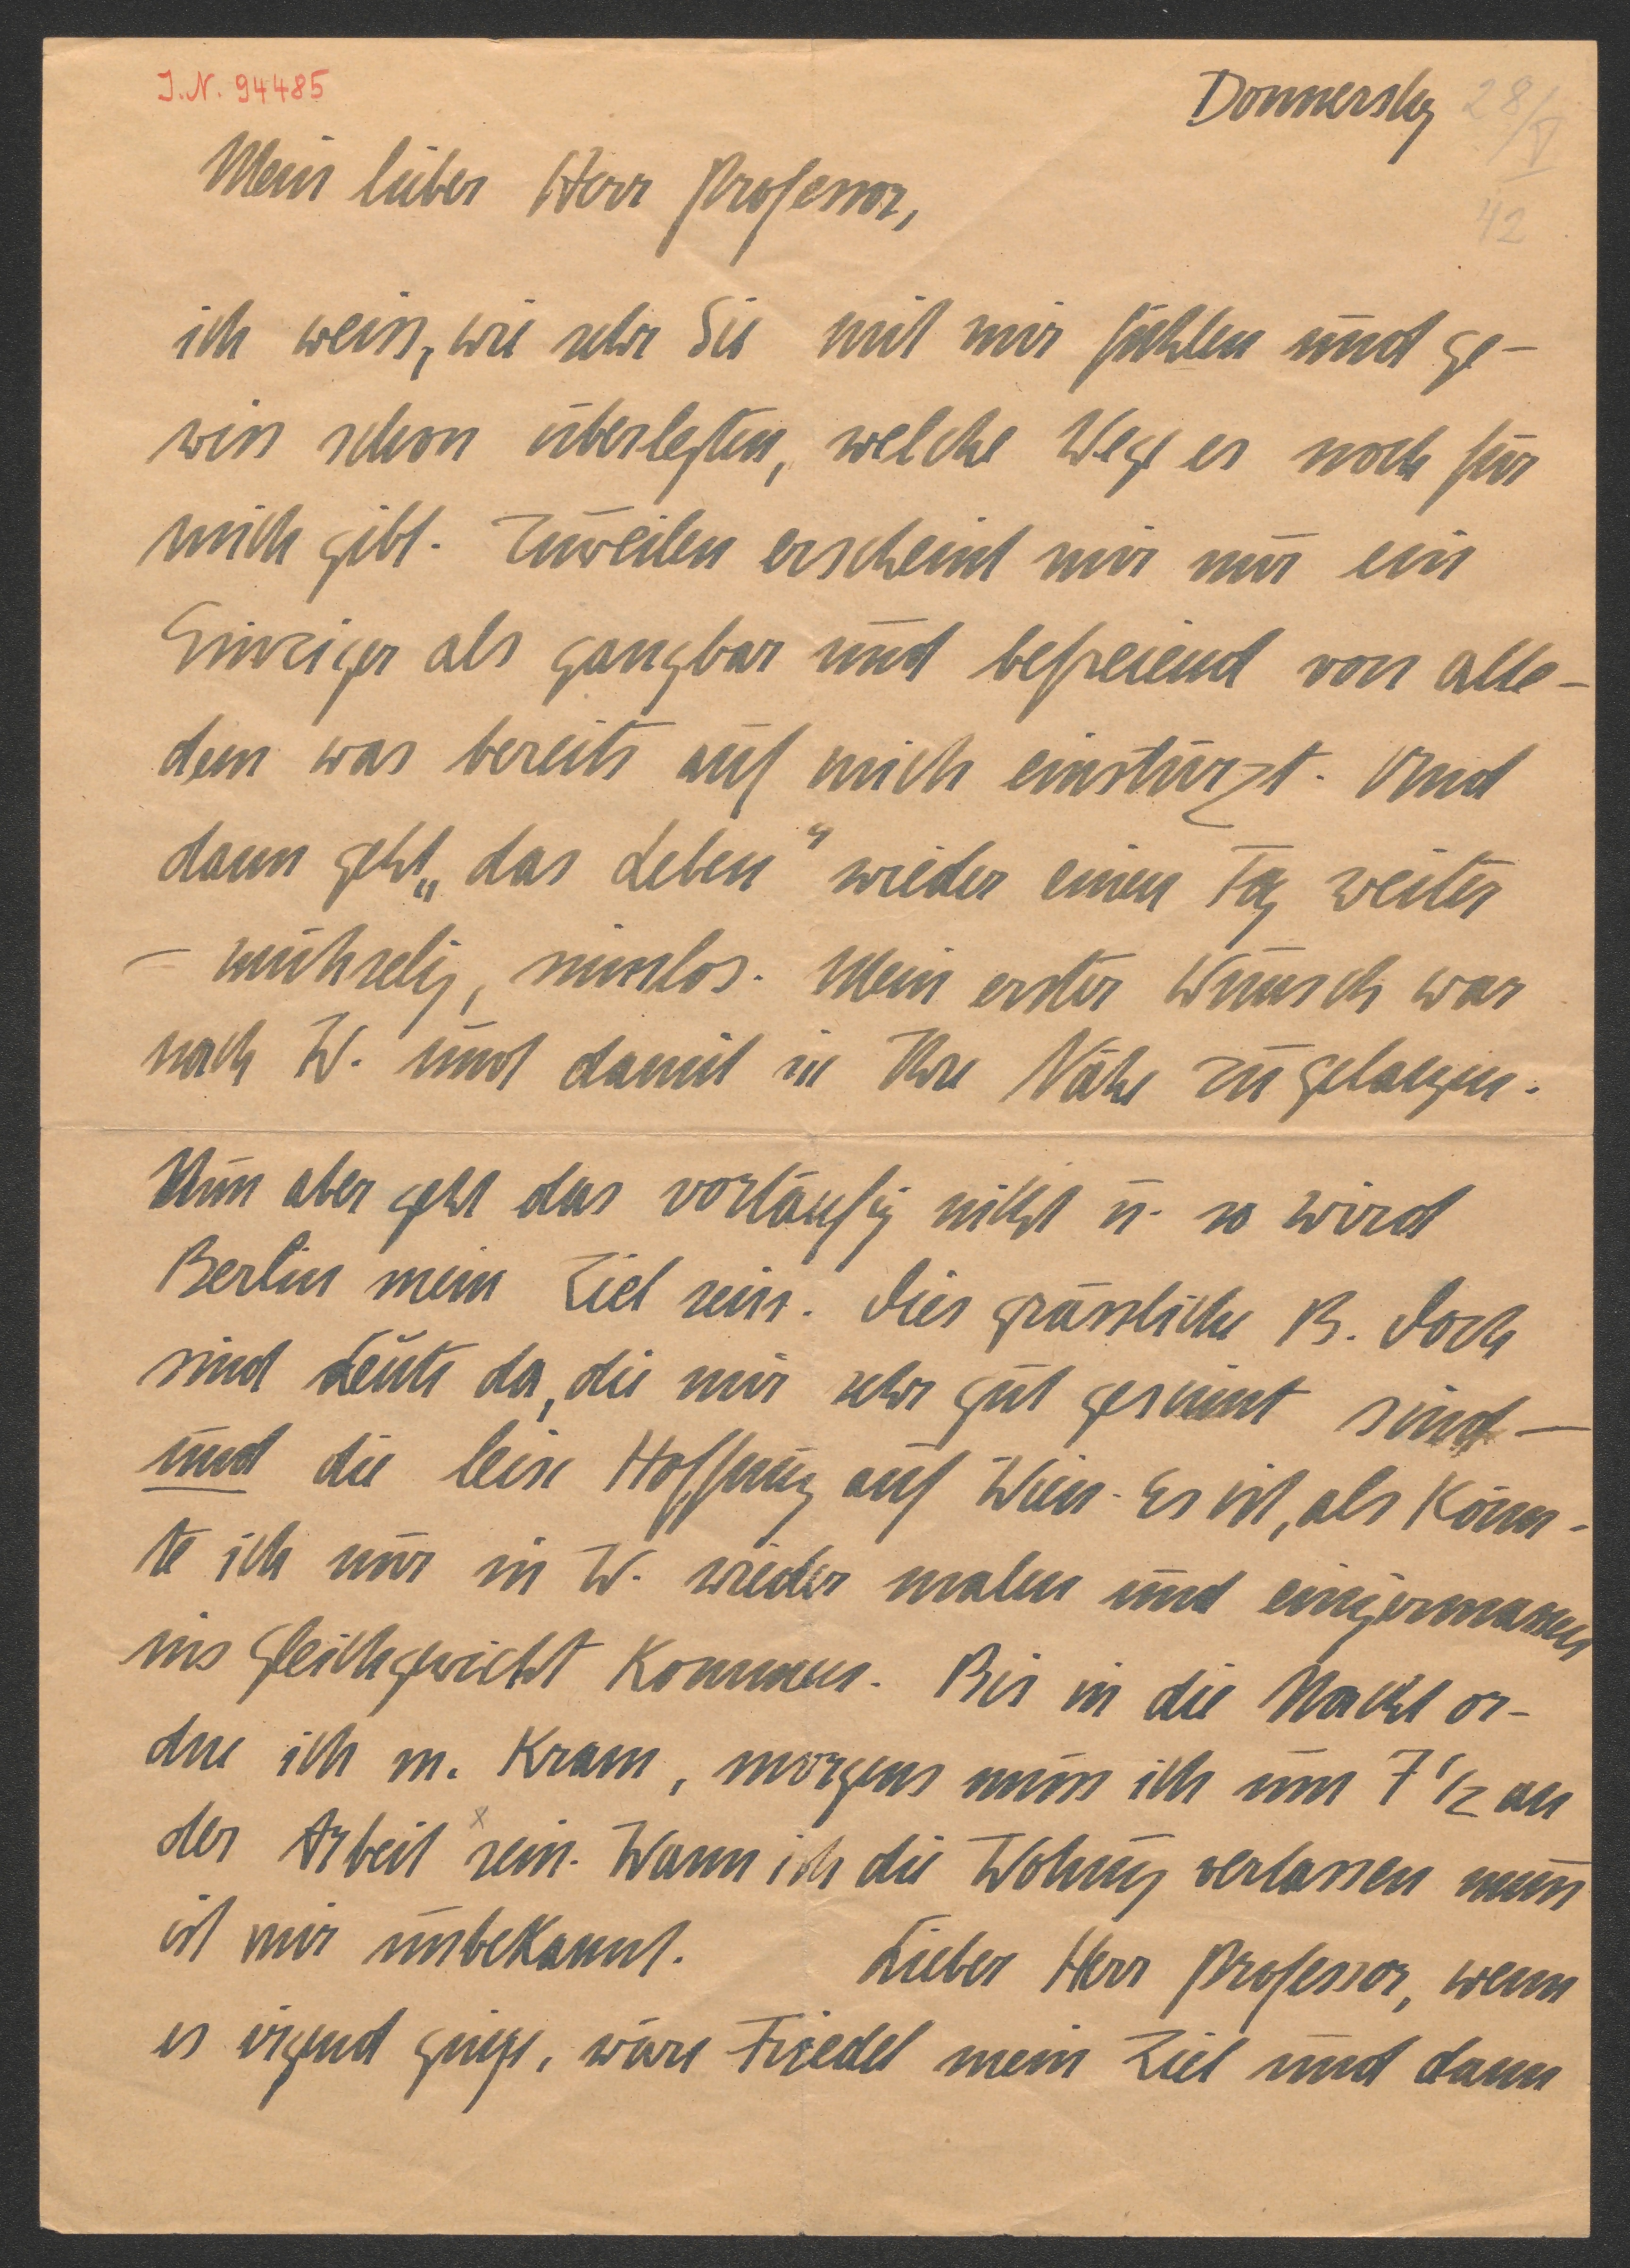 J.N. 94485
Donnerstag 28/V
42
Mein lieber Herr Professor,
ich weiss, wie sehr Sie mit mir fühlen und ge-
wiss schon überlegten, welche Wege es noch für
mich gibt. Zuweilen erscheint mir nur ein
Einziger als gangbar und befreiend von alle-
dem was bereits auf mich einstürzt. Und
dann geht „das Leben" wieder einen Tag weiter
– mühselig, sinnlos. Mein erster Wunsch war
nach W. und damit in Ihre Nähe zu gelangen.
Nun aber geht das vorläufig nicht u. so wird
Berlin mein Ziel sein. Dies grässliche B. Doch
sind Leute da, die mir sehr gut gesinnt sind –
und die leise Hoffnung auf Wien. Es ist, als könn-
te ich nur in W. wieder malen und einigermassen
ins Gleichgewicht kommen. Bis in die Nacht or-
dne ich m. Kram, morgens muss ich um 7 1/2 an
der Arbeit x sein. Wann ich die Wohnung verlassen muss
ist mir unbekannt. Lieber Herr Professor, wenn
es irgend ginge, wäre Friedel mein Ziel und dann